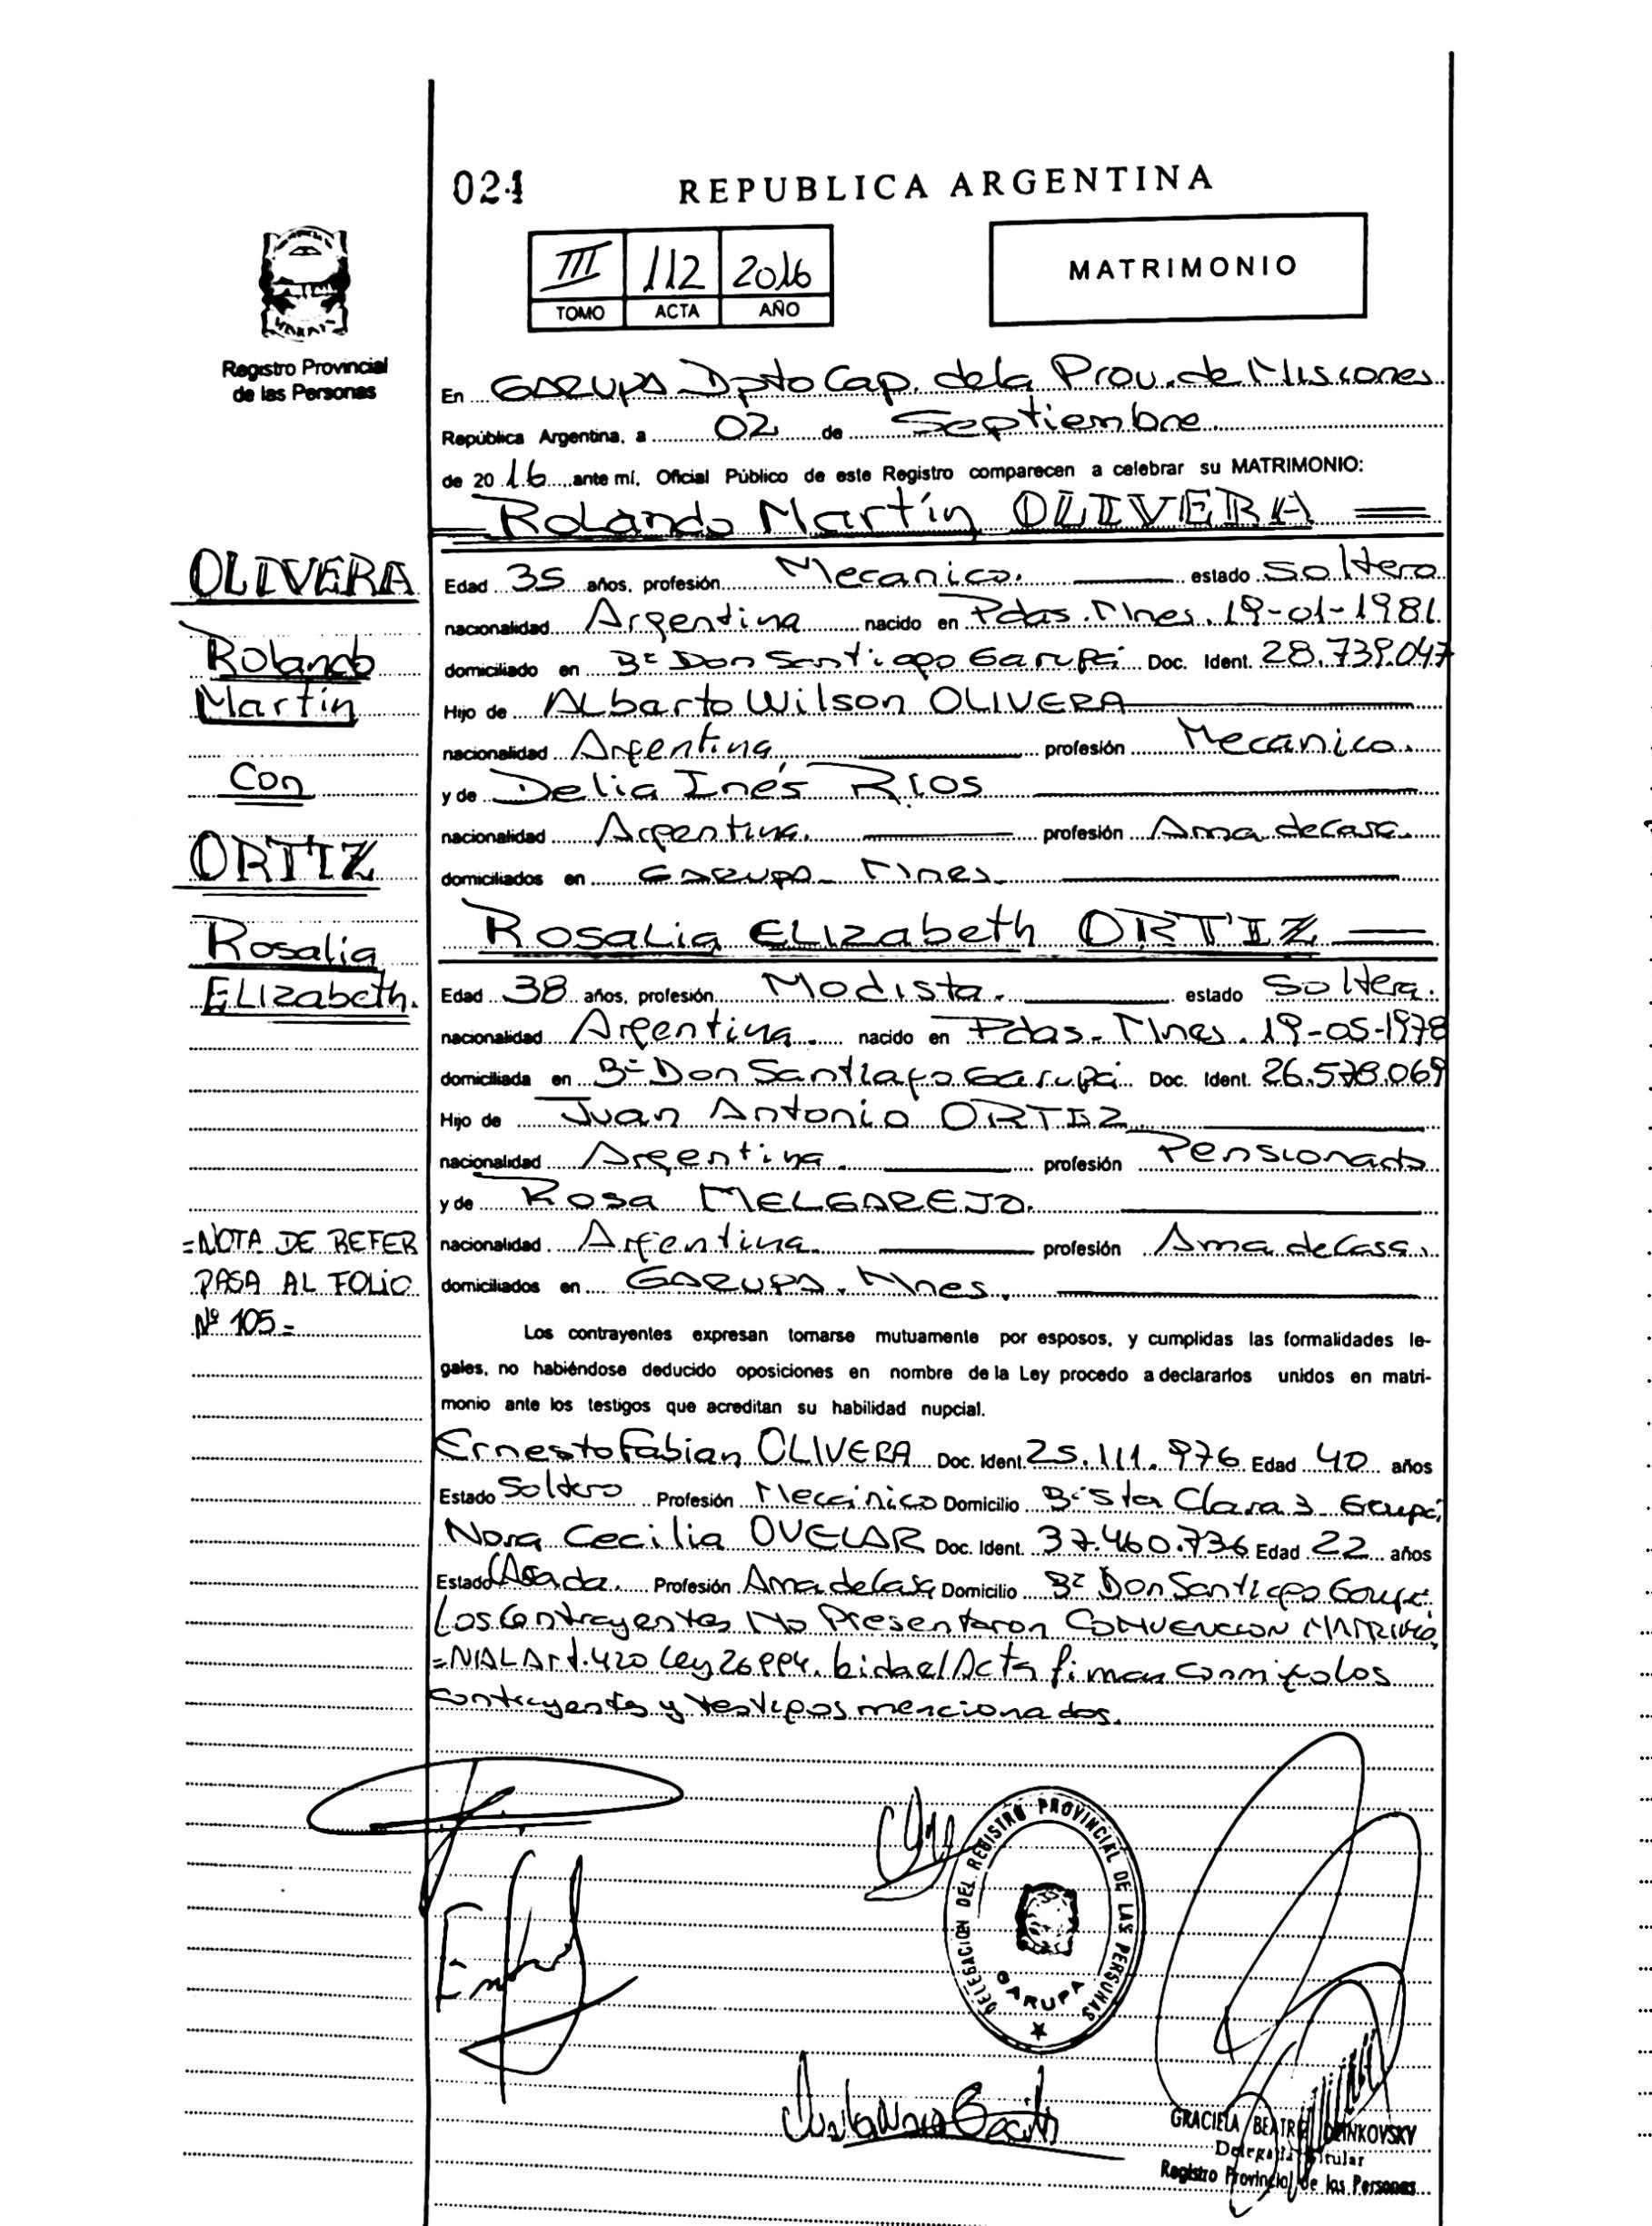 024
REPUBLICA ARGENTINA
III 112 2016
TOMO ACTA AÑO
MATRIMONIO
Registro Provincial
de las Personas
En GARUPA Dpto Cap. de la Prov. de Misiones
República Argentina, a 02 de Septiembre
de 20 16 ante mí, Oficial Público de este Registro comparecen a celebrar su MATRIMONIO:
Rolando Martín OLIVERA
OLIVERA
Rolando
Martín
Con
ORTIZ
Rosalia
ELizabeth.
Edad 35 años, profesión Mecanico. estado Soltero
nacionalidad Argentina nacido en Pdas. Mnes. 19-01-1981
domiciliado en Bº Don Santiago Garupá Doc. Ident. 28.739.047
Hijo de ALberto Wilson OLIVERA
nacionalidad Argentina profesión Mecanico.
y de Delia Inés RIOS
nacionalidad Argentina. profesión Ama de Casa.
domiciliados en GARUPA- Mnes.
Rosalia ELizabeth ORTIZ
Edad 38 años, profesión Modista. estado Soltera.
nacionalidad Argentina. nacido en Pdas- Mnes. 19-05-1978
domiciliada en Bº Don Santiago Garupá Doc. Ident. 26.578.069
Hijo de Juan Antonio ORTIZ
nacionalidad Argentina. profesión Pensionado
y de Rosa MELGAREJO.
nacionalidad Argentina profesión Ama de Casa.
domiciliados en GARUPA. Mnes.
=NOTA DE REFER
PASA AL FOLIO
Nº 105=
Los contrayentes expresan tomarse mutuamente por esposos, y cumplidas las formalidades le-
gales, no habiéndose deducido oposiciones en nombre de la Ley procedo a declararlos unidos en matri-
monio ante los testigos que acreditan su habilidad nupcial.
Ernesto Fabian OLIVERA Doc. Ident 25.111.976 Edad 40 años
Estado Soltero Profesión Mecánico Domicilio Bº Sta Clara 3 Garupá
Nora Cecilia OVELAR Doc. Ident. 37.460.736 Edad 22 años
Estado Casada. Profesión Ama de Casa Domicilio Bº Don Santiago Garupá
Los Contrayentes No Presentaron CONVENCION MATRIMO
=NIAL Art. 420 Ley 26994. Leida el Acta firman conmigo los
contrayentes y testigos mencionados.
DELEGACION DEL REGISTRO PROVINCIAL DE LAS PERSONAS
GARUPA
GRACIELA BEATRIZ
Delegada Titular
Registro Provincial de las Personas